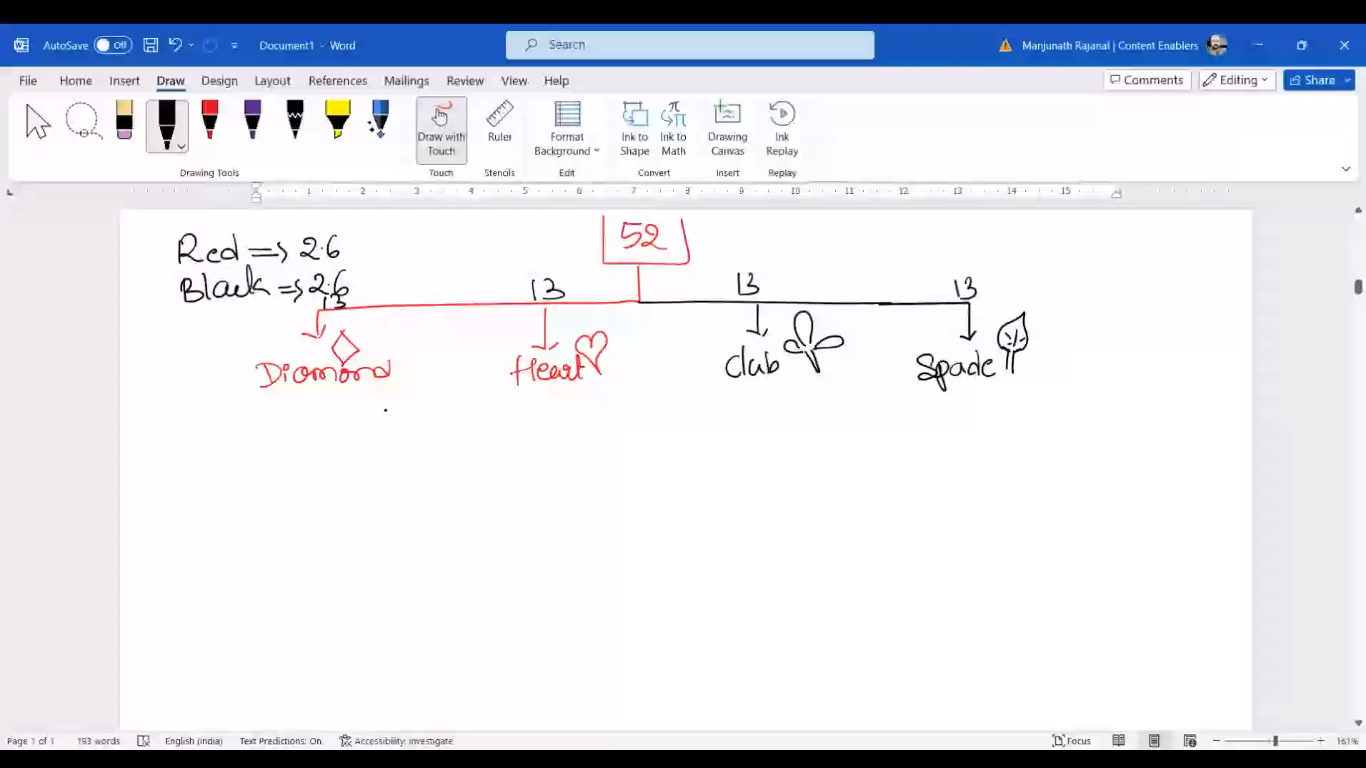 AutoSave Off Document1 - Word Search Manjunath Rajanal | Content Enablers
File Home Insert Draw Design Layout References Mailings Review View Help Comments Editing Share
Draw with Touch Ruler Format Background Ink to Shape Ink to Math Drawing Canvas Ink Replay
Drawing Tools Touch Stencils Edit Convert Insert Replay
1 2 3 4 5 6 7 8 9 10 11 12 13 14 15
52
Red => 2.6
Black => 2.6
13 13 13 13
Diamond Heart Club Spade
Page 1 of 1 193 words English (India) Text Predictions: On Accessibility: Investigate Focus 161%